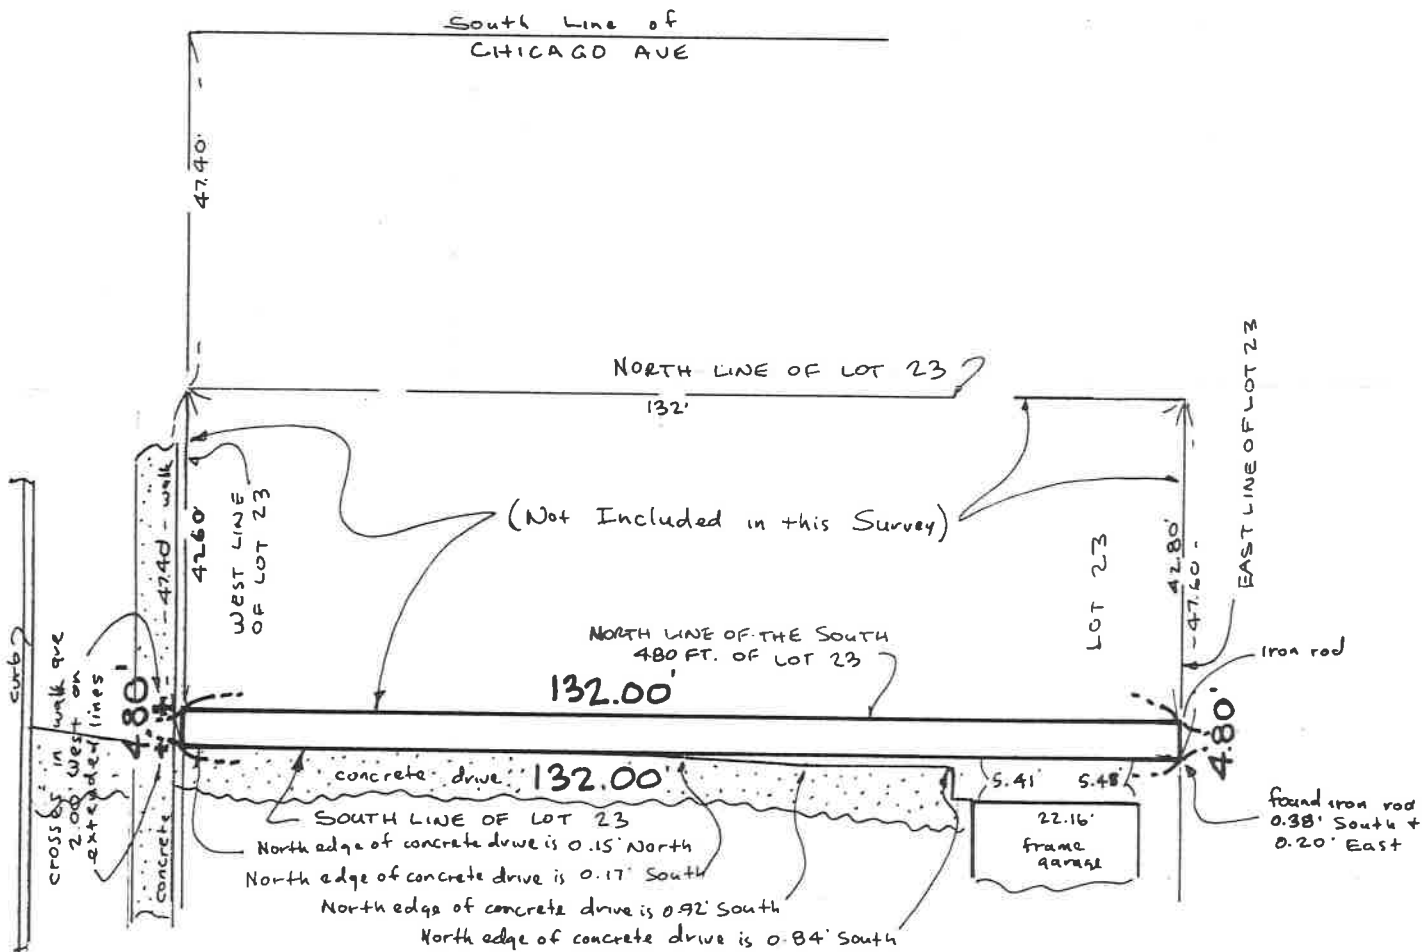 South Line of
CHICAGO AVE
47.40'
NORTH LINE OF LOT 23
132'
EAST LINE OF LOT 23
(Not Included in this Survey)
WEST LINE
OF LOT 23
42.60'
47.40 - walk
concrete
LOT 23
42.80'
-47.60-
NORTH LINE OF THE SOUTH
4.80 FT. OF LOT 23
iron rod
132.00'
4.80'
4.80'
curb
crosses in walk are
2.00' West on
extended lines
concrete drive
132.00'
5.41'
5.48'
SOUTH LINE OF LOT 23
22.16'
frame
garage
found iron rod
0.38' South +
0.20' East
North edge of concrete drive is 0.15' North
North edge of concrete drive is 0.17' South
North edge of concrete drive is 0.92' South
North edge of concrete drive is 0.84' South